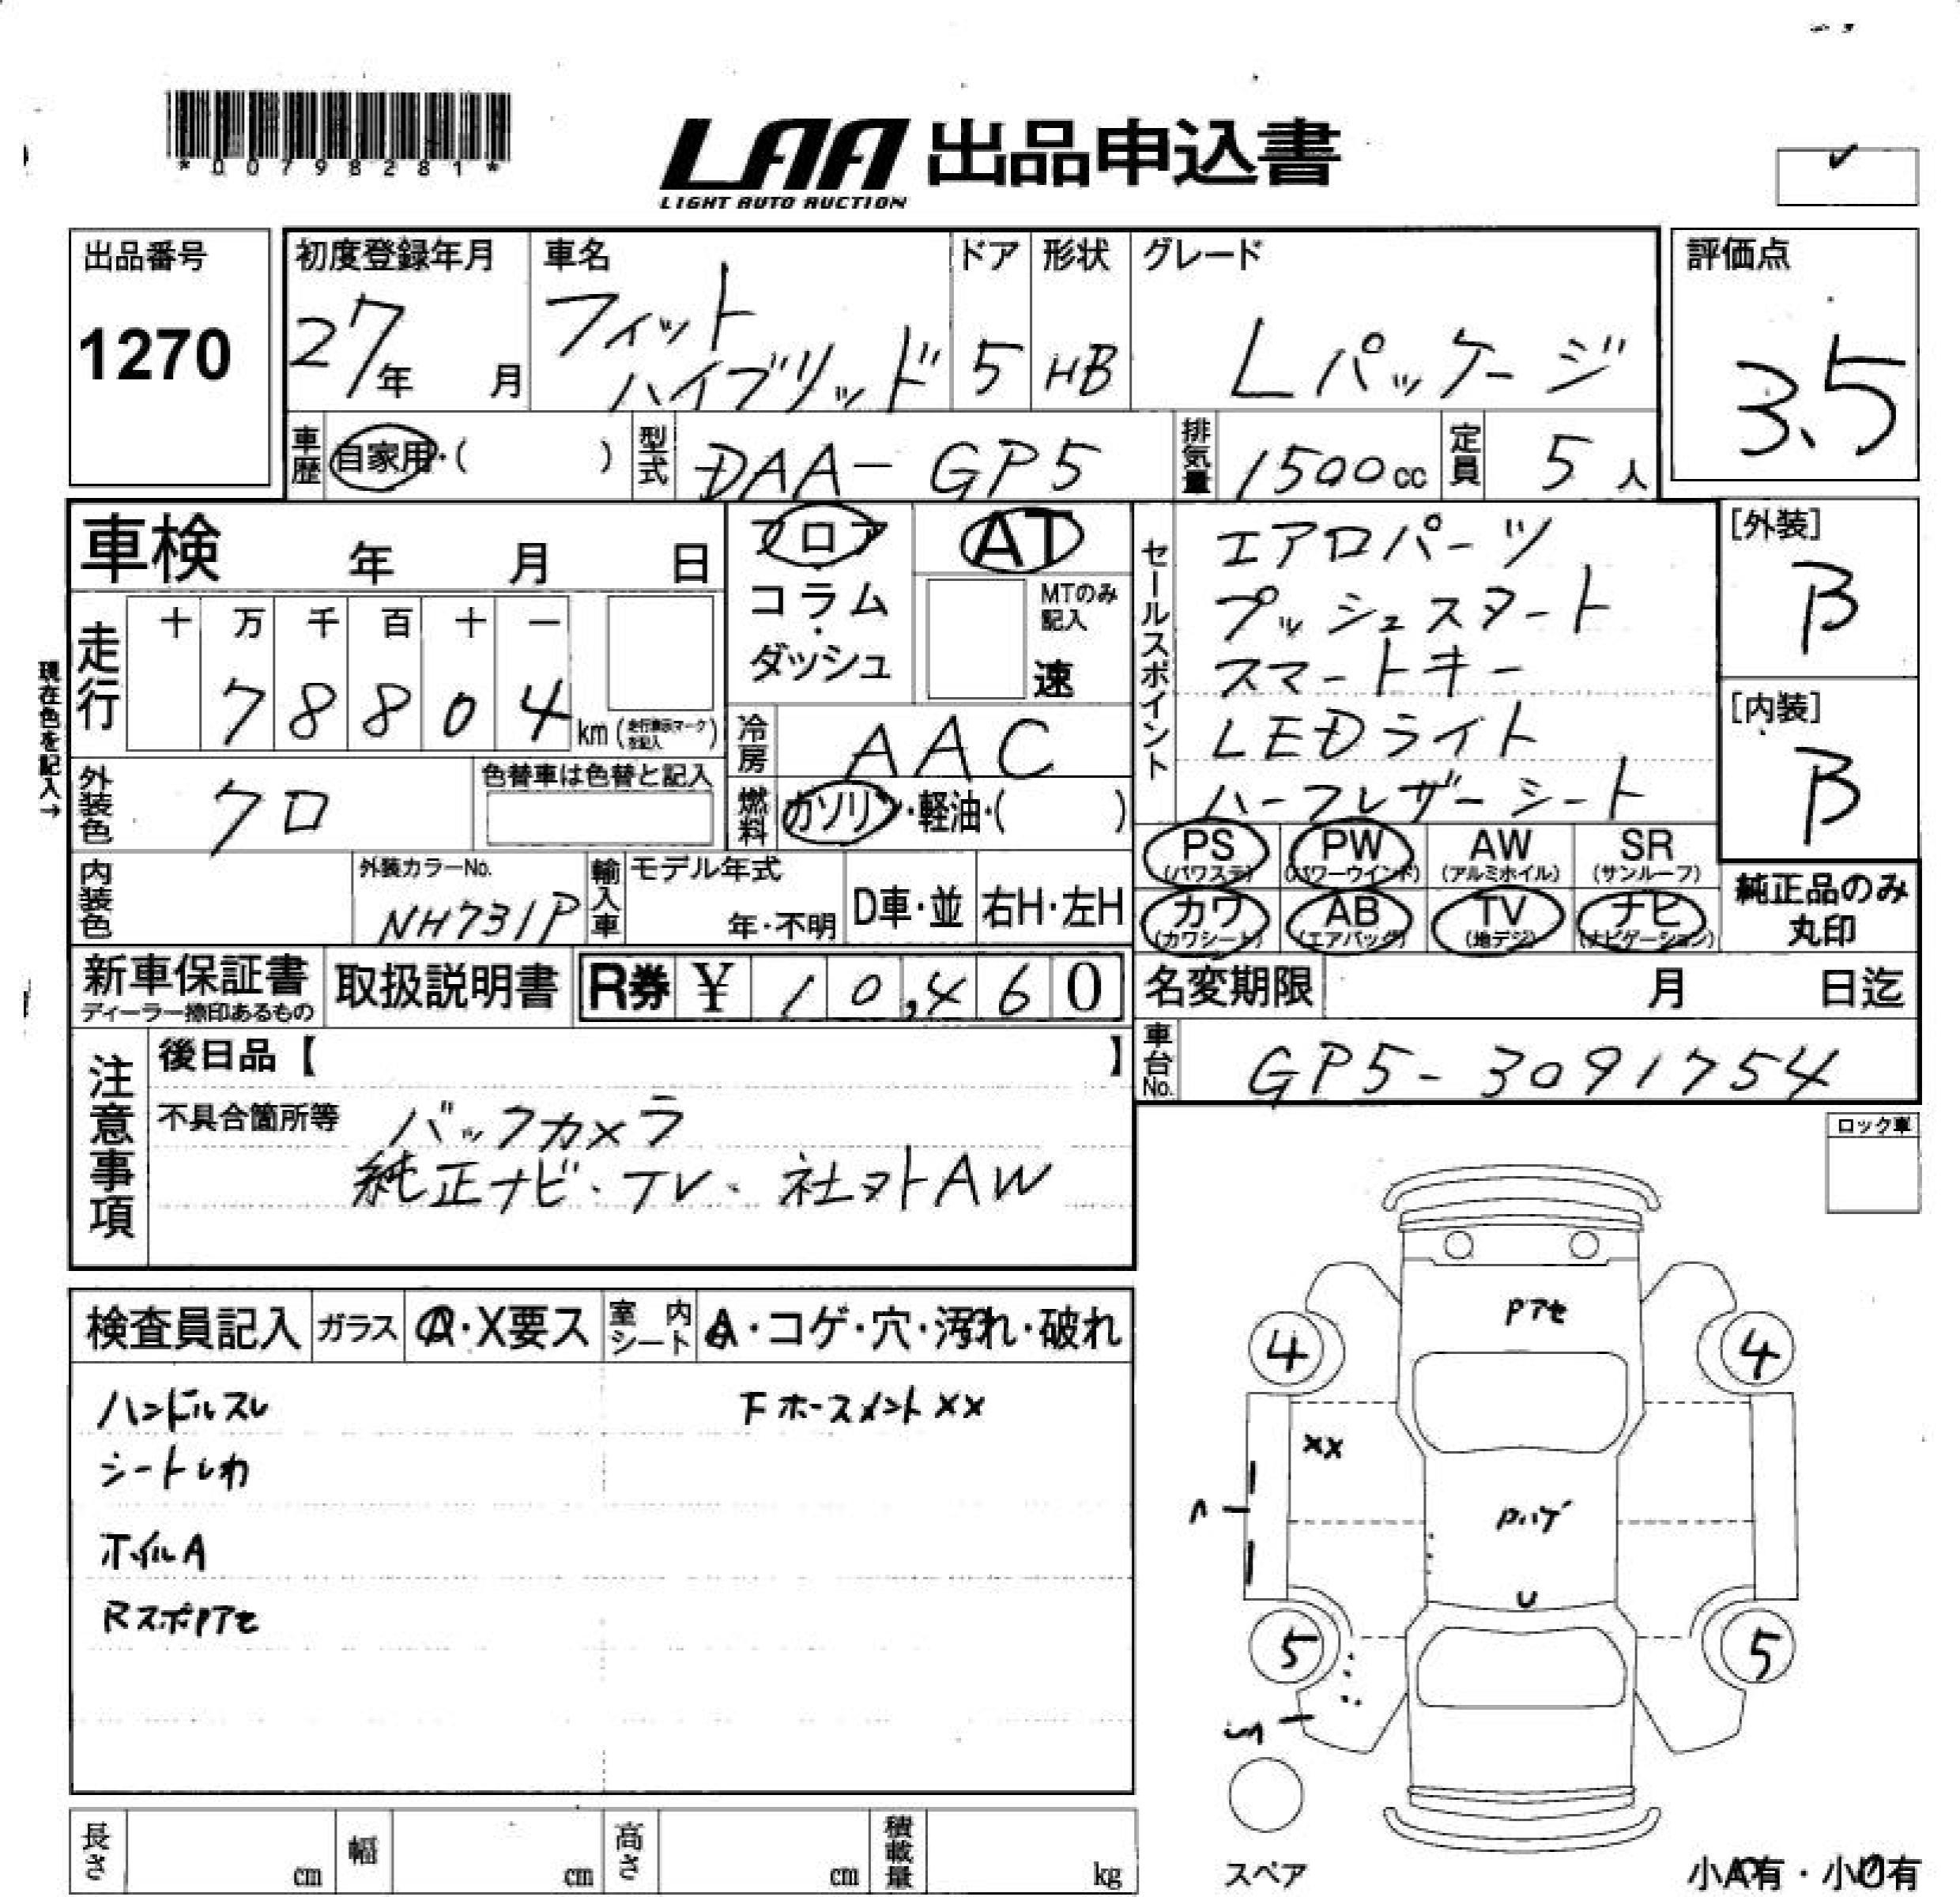 *00798281*
LAA 出品申込書
LIGHT AUTO AUCTION
出品番号
1270
初度登録年月
27年 月
車名
フィット
ハイブリッド
ドア
5
形状
HB
グレード
Lパッケージ
評価点
3.5
車歴 自家用・( )
型式 DAA-GP5
排気量 1500cc
定員 5人
車検 年 月 日
フロア
コラム
・
ダッシュ
AT
MTのみ
記入
速
セールスポイント
エアロパーツ
プッシュスタート
スマートキー
LEDライト
ハーフレザーシート
[外装]
B
[内装]
B
現在色を記入→
走行
十 万 千 百 十 一
7 8 8 0 4 km(走行表示マークを記入)
冷房 AAC
燃料 ガソリン・軽油・( )
外装色 クロ
色替車は色替と記入
内装色
外装カラーNo.
NH731P
輸入車
モデル年式
年・不明
D車・並
右H・左H
PS (パワステ)
PW (パワーウインド)
AW (アルミホイル)
SR (サンルーフ)
カワ (カワシート)
AB (エアバッグ)
TV (地デジ)
ナビ (ナビゲーション)
純正品のみ
丸印
新車保証書
ディーラー捺印あるもの
取扱説明書
R券 ¥ 10,460
名変期限 月 日迄
車台No. GP5-3091754
注意事項
後日品【 】
不具合箇所等 バックカメラ
純正ナビ・TV・社外AW
ロック車
検査員記入
ガラス A・X要ス
室内シート A・コゲ・穴・汚れ・破れ
ハンドルスレ
Fホースメント××
シートシワ
ホイルA
RスポPアセ
Pアセ
4
4
××
Pハゲ
U
5
5
スペア
長さ cm
幅 cm
高さ cm
積載量 kg
小A有・小U有